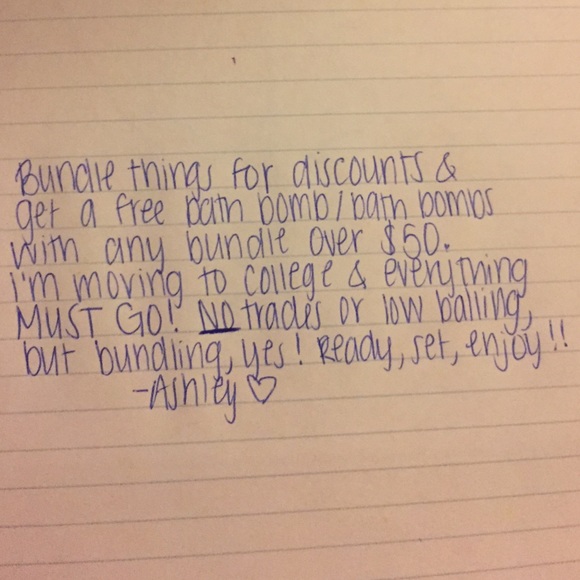 Bundle things for discounts &
get a free bath bomb/bath bombs
with any bundle over $50.
i'm moving to college & everything
MUST GO! NO trades or low balling,
but bundling, yes! Ready, set, enjoy!!
-Ashley♡